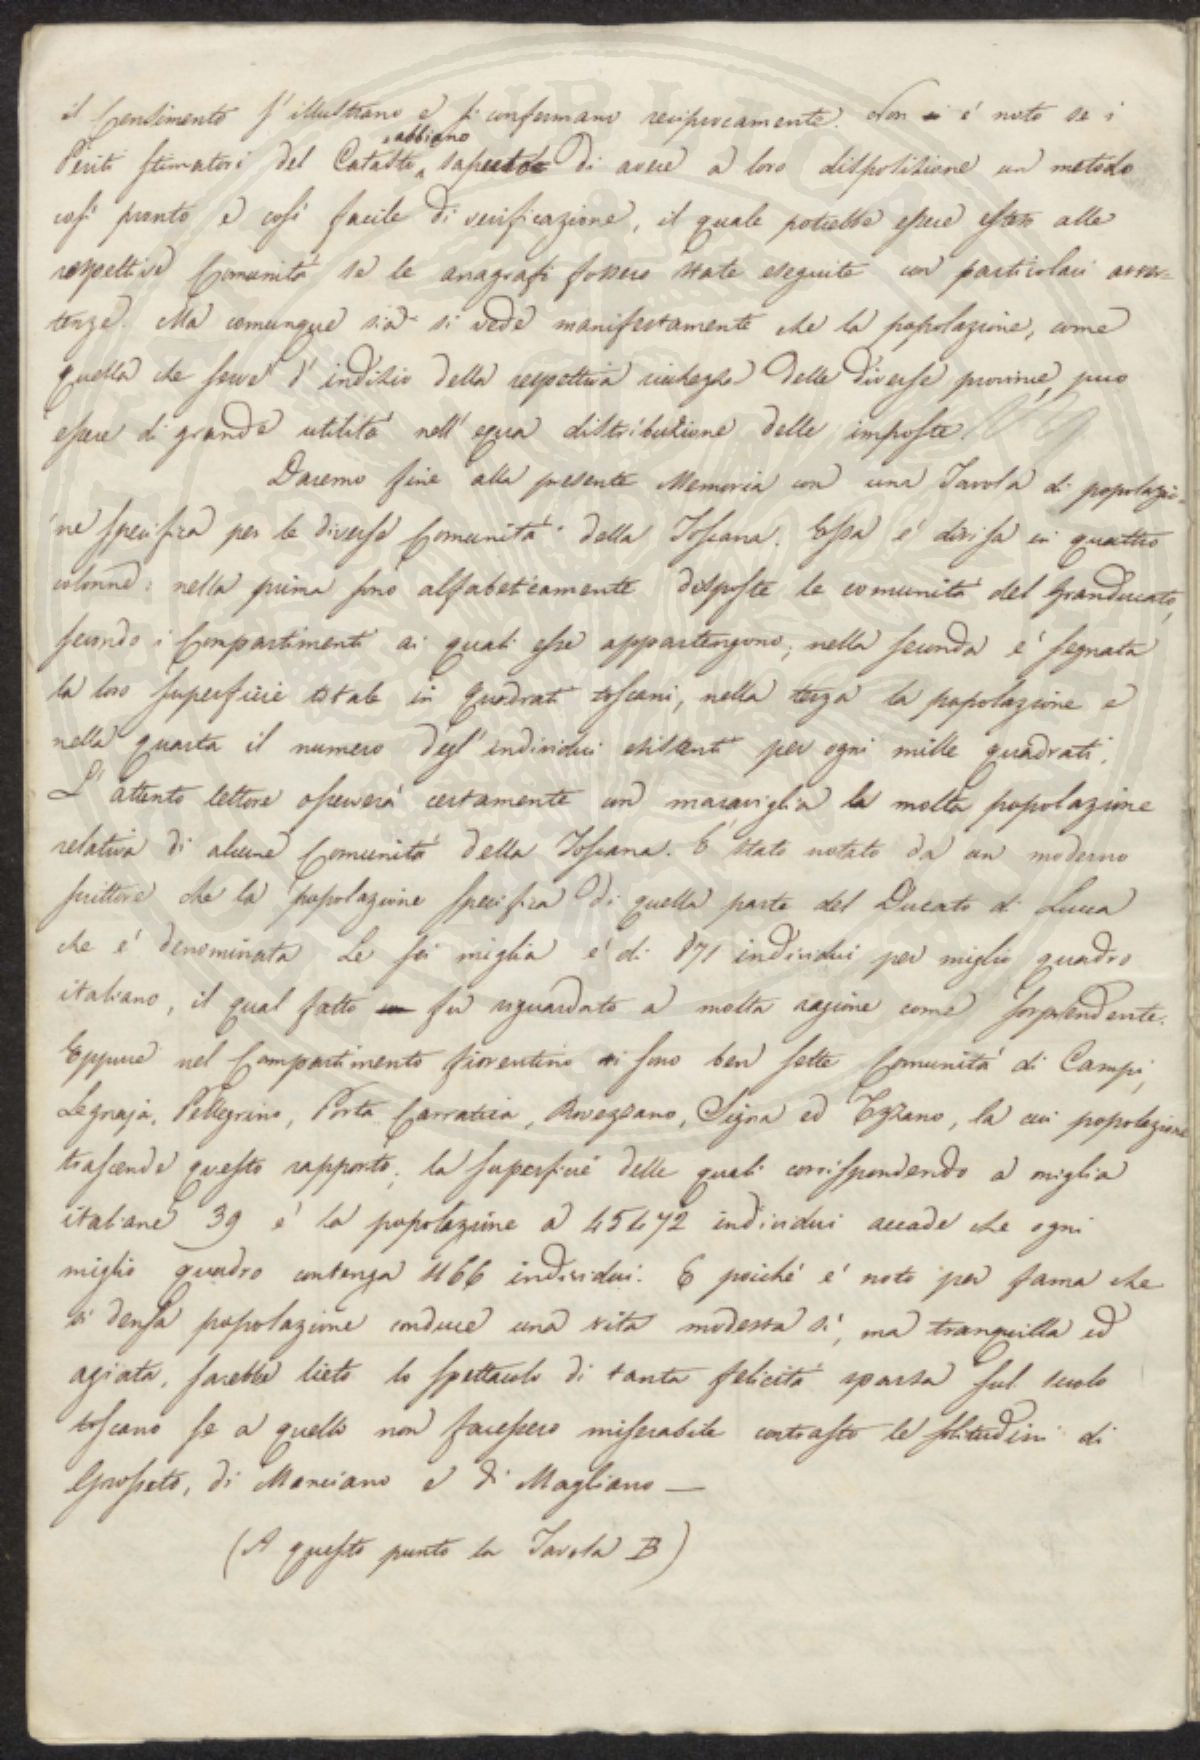 il Censimento s'illustrano e si confermano reciprocamente. Non ci è noto se i
Periti stimatori del Catasto abbiano saputo di avere a loro disposizione un metodo
così pronto e così facile di verificazione, il quale potrebbe essere esteso alle
respettive Comunità se le anagrafi fossero state eseguite con particolari avver-
tenze. Ma comunque sia si vede manifestamente che la popolazione, come
quella che serve d'indizio della respettiva ricchezza delle diverse provincie, può
essere di grande utilità nell'equa distribuzione delle imposte.
Daremo fine alla presente Memoria con una Tavola di popolazio-
ne specifica per le diverse Comunità della Toscana. Essa è divisa in quattro
colonne: nella prima sono alfabeticamente disposte le comunità del Granducato,
secondo i Compartimenti ai quali esse appartengono; nella seconda è segnata
la loro superficie totale in quadrati toscani, nella terza la popolazione e
nella quarta il numero degl'individui esistenti per ogni mille quadrati.
L'attento lettore osserverà certamente con maraviglia la molta popolazione
relativa di alcune Comunità della Toscana. È stato notato da un moderno
scrittore che la popolazione specifica di quella parte del Ducato di Lucca
che è denominata Le sei miglia è di 871 individui per miglio quadro
italiano, il qual fatto fu riguardato a molta ragione come sorprendente.
Eppure nel Compartimento fiorentino vi sono ben sette Comunità di Campi,
Legnaja, Pellegrino, Porta Carratica, Rovezzano, Signa ed Tizzano, la cui popolazione
trascende questo rapporto; la superficie delle quali corrispondendo a miglia
italiane 39 e la popolazione a 45472 individui accade che ogni
miglio quadro contenga 1166 individui. E poichè è noto per fama che
sì densa popolazione conduce una vita modesta sì, ma tranquilla ed
agiata, sarebbe lieto lo spettacolo di tanta felicità sparsa sul suolo
toscano se a quello non facessero miserabile contrasto le solitudini di
Grosseto, di Manciano e di Magliano —
(A questo punto la Tavola B)